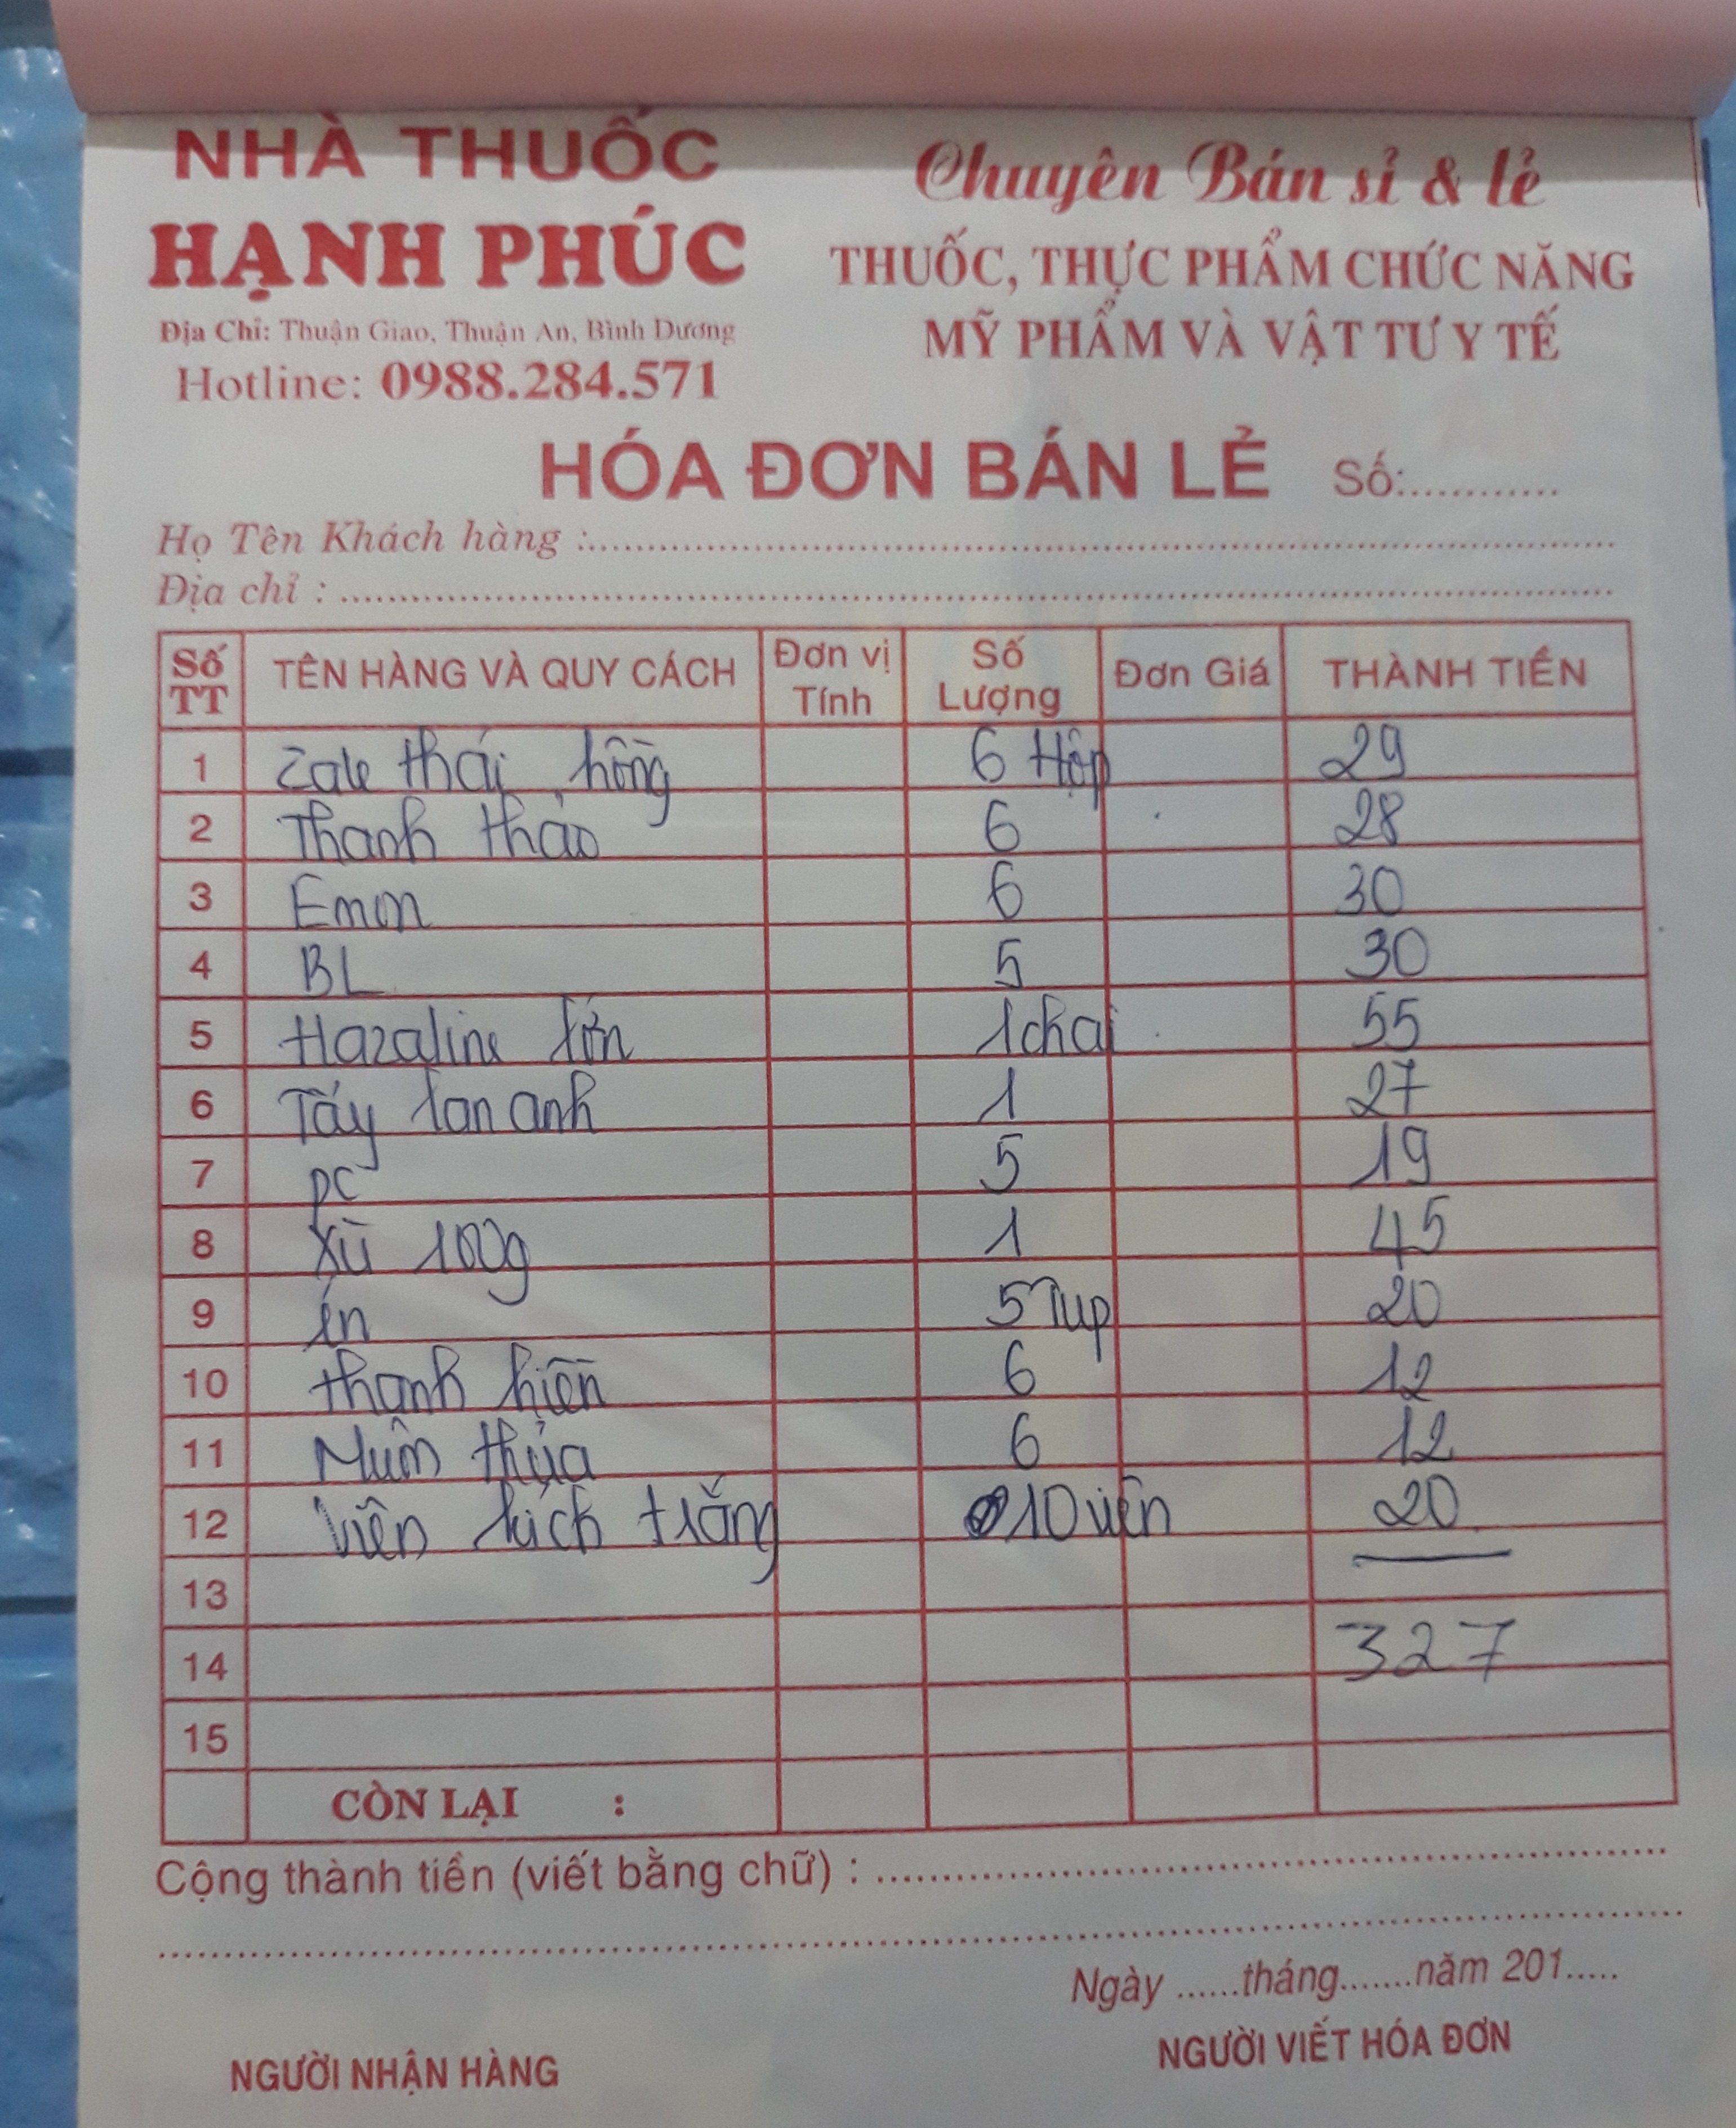 NHÀ THUỐC
HẠNH PHÚC
Địa Chỉ: Thuận Giao, Thuận An, Bình Dương
Hotline: 0988.284.571
Chuyên Bán sỉ & lẻ
THUỐC, THỰC PHẨM CHỨC NĂNG
MỸ PHẨM VÀ VẬT TƯ Y TẾ
HÓA ĐƠN BÁN LẺ Số:............
Họ Tên Khách hàng :
Địa chỉ :
Số TT TÊN HÀNG VÀ QUY CÁCH Đơn vị Tính Số Lượng Đơn Giá THÀNH TIỀN
1 thái hồng 6 Hộp 29
2 Thanh thảo 6 28
3 Emm 6 30
4 BL 5 30
5 Hazaline lớn 1 chai 55
6 Tẩy lan anh 1 27
7 PC 5 19
8 Xù 100g 1 45
9 én 5 Tup 20
10 thanh hiền 6 12
11 Muôn thủa 6 12
12 Viên kích trắng 10 viên 20
13
14 327
15
CÒN LẠI :
Cộng thành tiền (viết bằng chữ) :
Ngày ......tháng.......năm 201.....
NGƯỜI NHẬN HÀNG NGƯỜI VIẾT HÓA ĐƠN